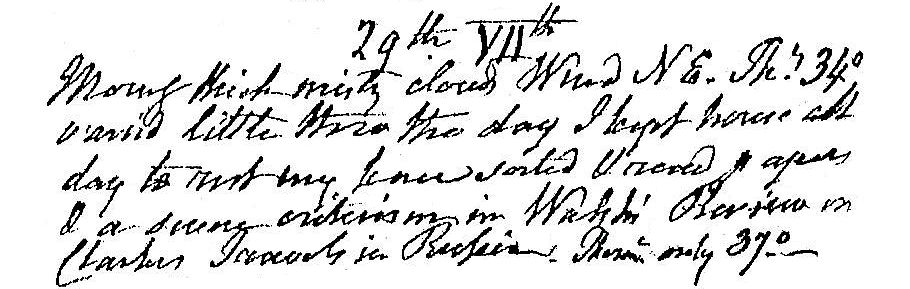 29th VIIth
Morng thick misty clouds Wind N E. Thr 34°
varied little thro the day I kept house all
day to rest my knee sorted & read papers
& a severe criticism in Walshs Review on
Clarkes Travels in Russia. Therm only 37°